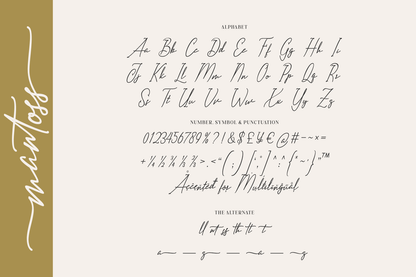 mantoss
ALPHABET
Aa Bb Cc Dd Ee Ff Gg Hh Ii
Jj Kk Ll Mm Nn Oo Pp Qq Rr
Ss Tt Uu Vv Ww Xx Yy Zz
NUMBER, SYMBOL & PUNCTUATION
0123456789%?!&$£¥€@#-~×=
Accented for Multilingual
THE ALTERNATE
ll nt ss th tt t
a g a g